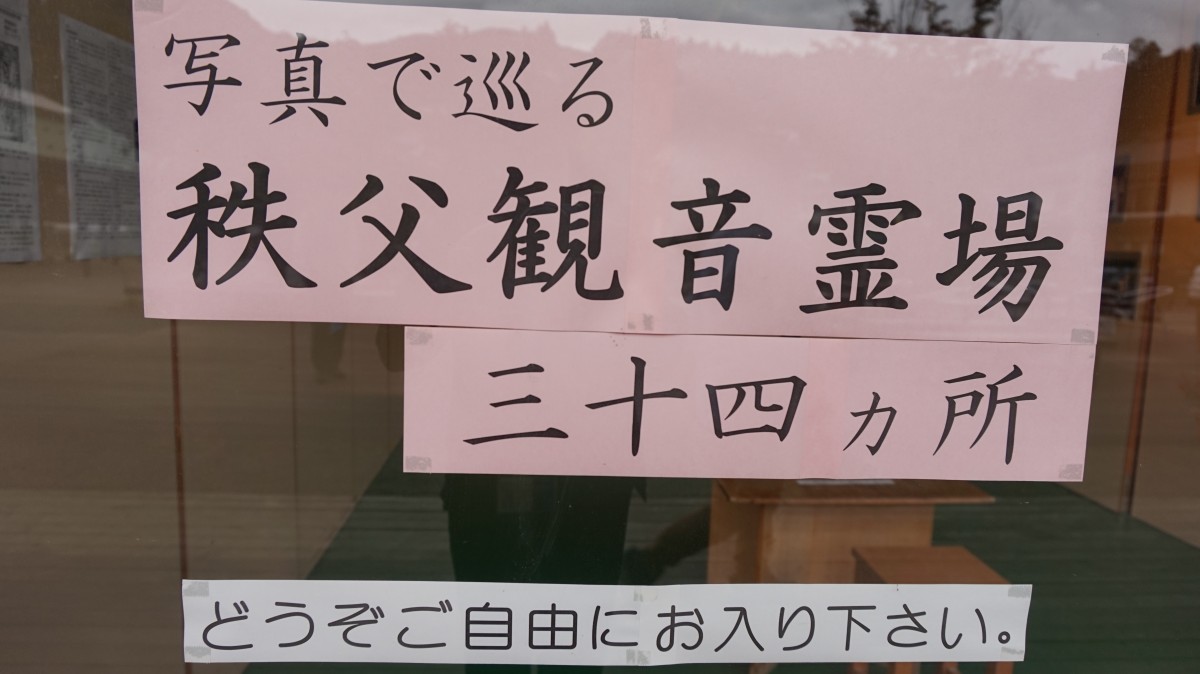 写真で巡る
秩父観音霊場
三十四ヵ所
どうぞご自由にお入り下さい。